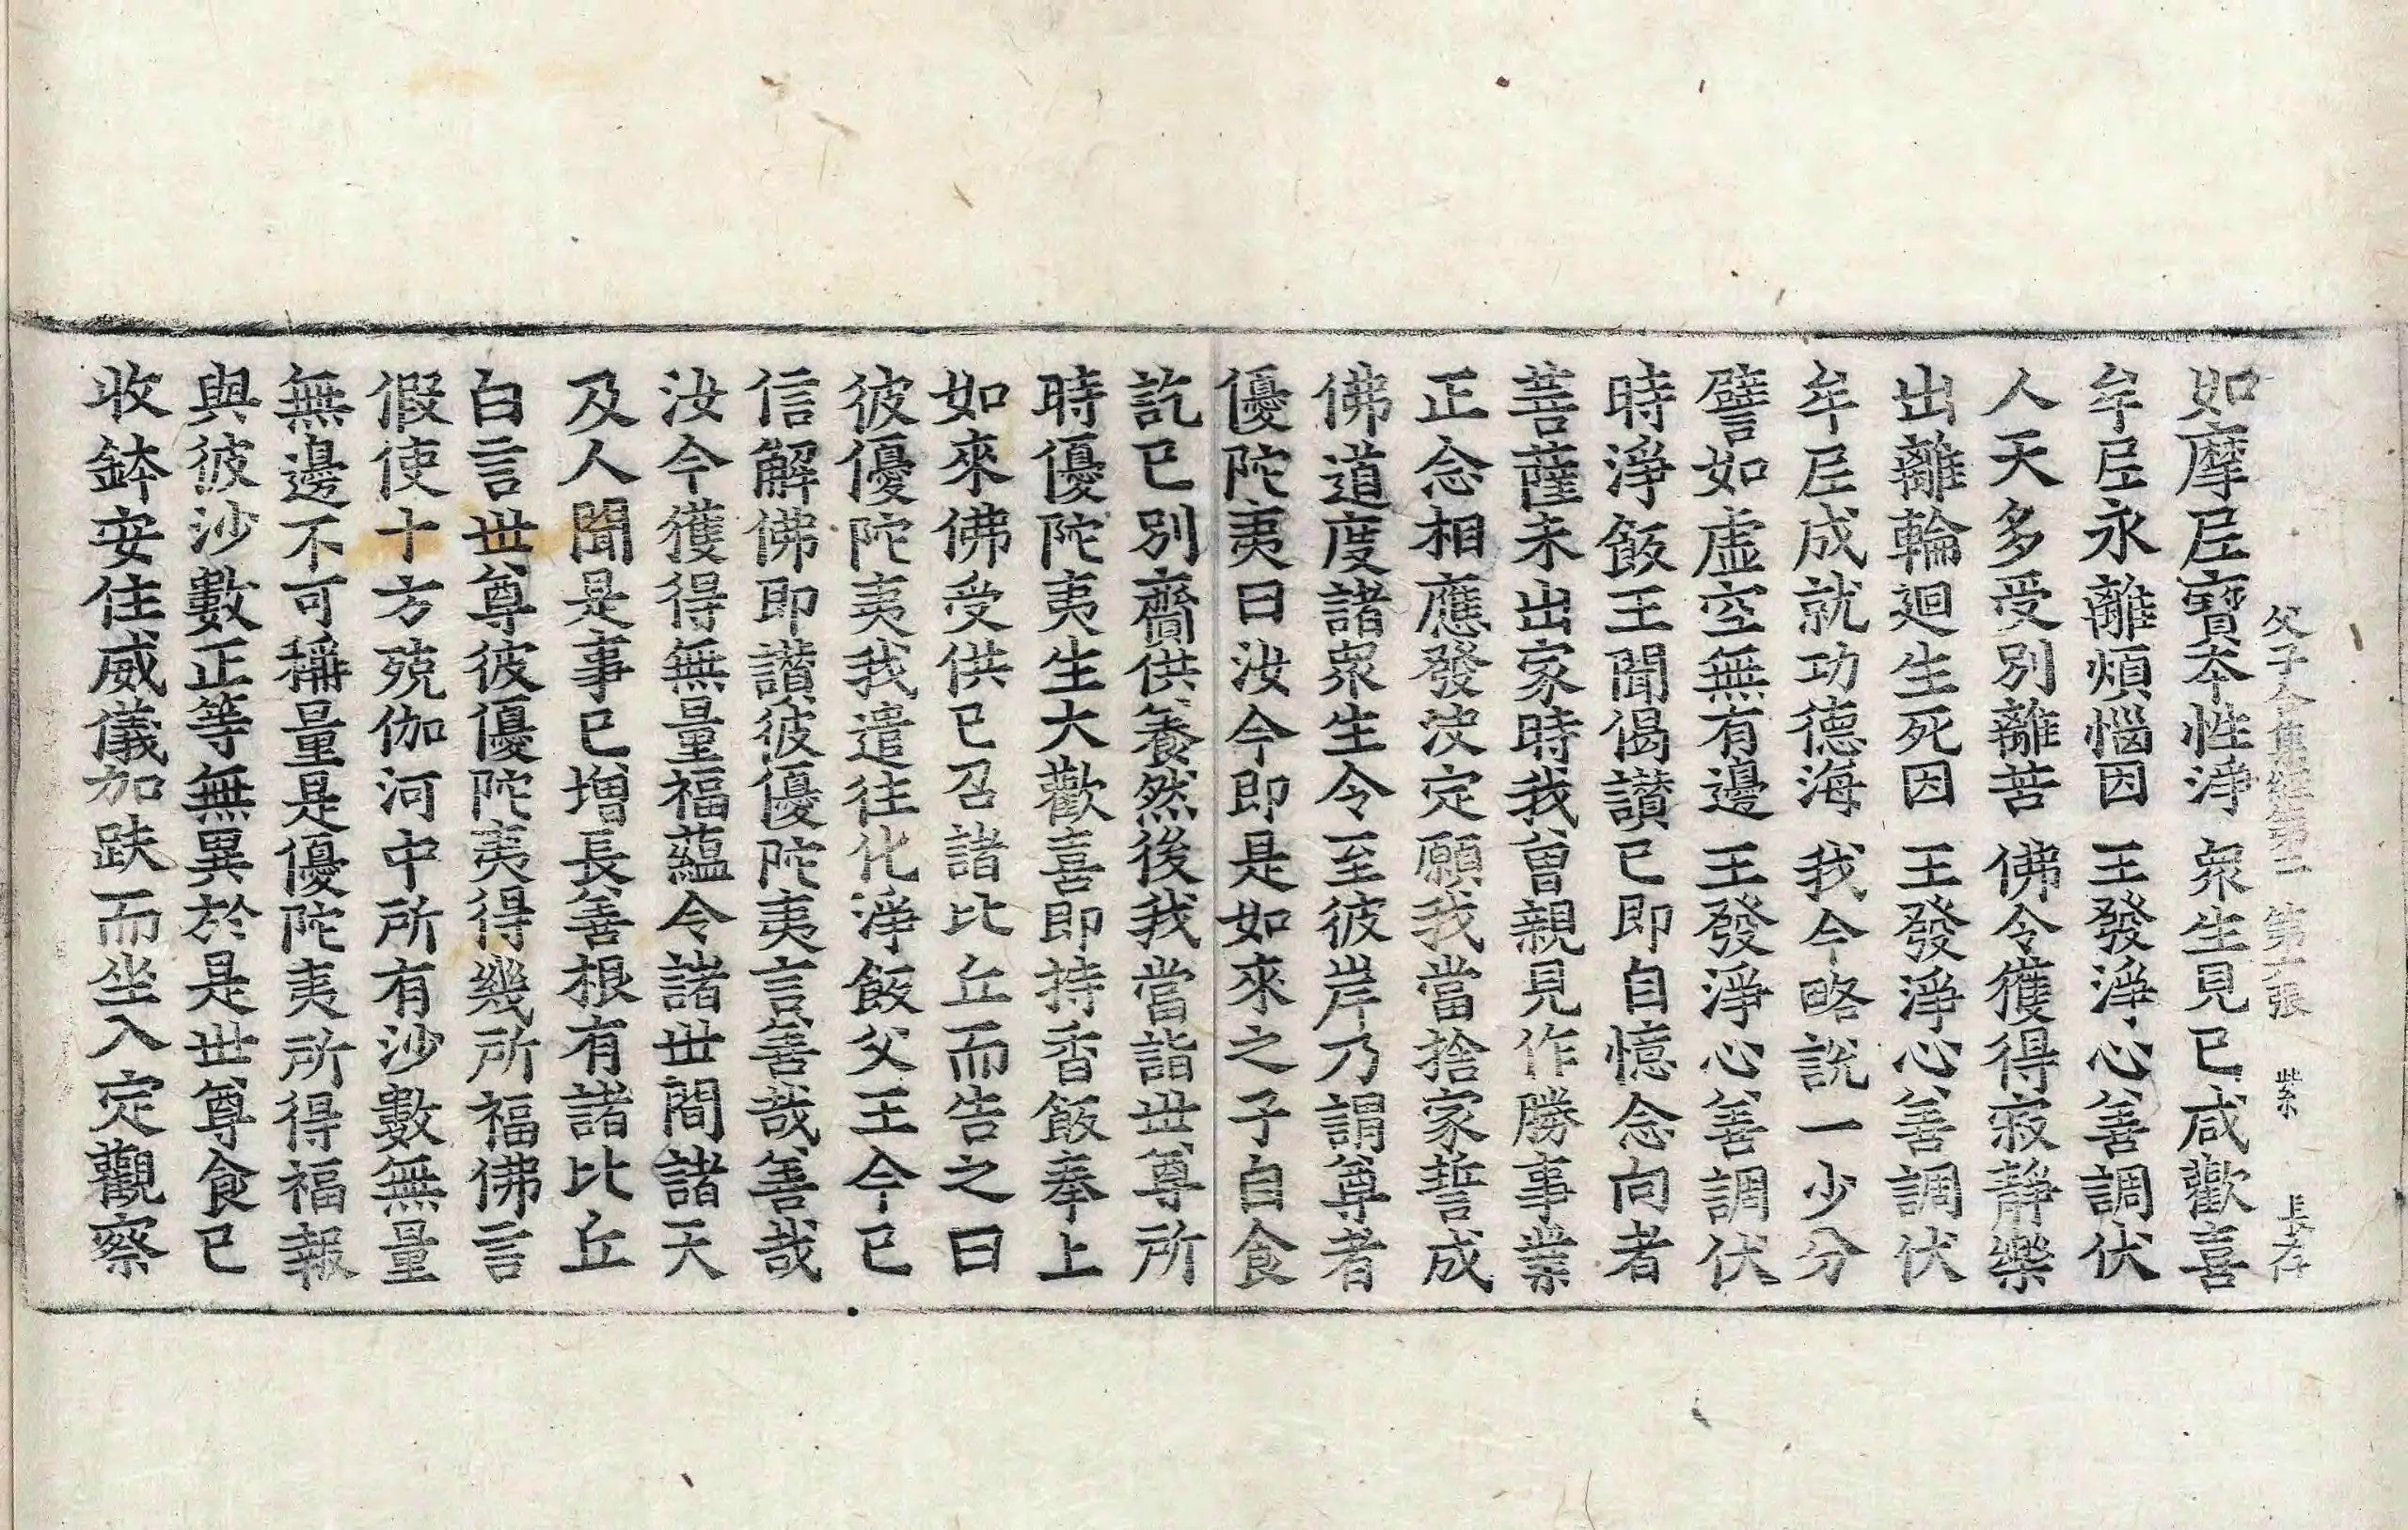 父子合集經第二 第十張 紫 長存
如摩𡰱寶夲性淨 衆生見已咸歡喜
牟𡰱永離煩惱因 王發淨心善調伏
人天多受別離苦 佛令獲得寂静樂
出離輪迴生死因 王發淨心善調伏
牟𡰱成就功德海 我今略說一少分
譬如虛空無有邊 王發淨心善調伏
時淨飯王聞偈讃已即自憶念向者
菩薩未出家時我曾親見作勝事業
正念相應發决定願我當捨家誓成
佛道度諸衆生令至彼岸乃謂尊者
優陀夷曰汝今即是如來之子自食
訖已別齎供養然後我當詣世尊所
時優陀夷生大歡喜即持香飯奉上
如來佛受供已召諸比丘而告之曰
彼優陀夷我遣往化淨飯父王今已
信解佛即讃彼優陀夷言善哉善哉
汝今獲得無量福蘊令諸世間諸天
及人聞是事已增長善根有諸比丘
白言世尊彼優陀夷得幾所福佛言
假使十方殑伽河中所有沙數無量
無邊不可稱量是優陀夷所得福報
與彼沙數正等無異於是世尊食已
收鉢安住威儀加趺而坐入定觀察